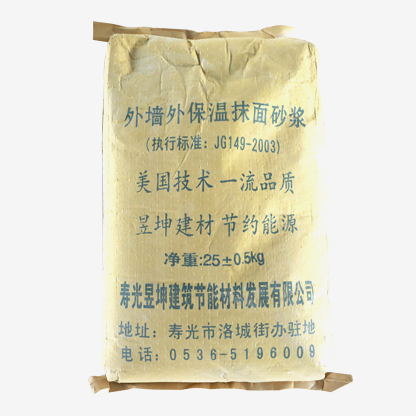 外墙外保温抹面砂浆
(执行标准：JG149-2003)
美国技术 一流品质
昱坤建材 节约能源
净重:25±0.5kg
寿光昱坤建筑节能材料发展有限公司
地址：寿光市洛城街办驻地
电话：0536-5196009